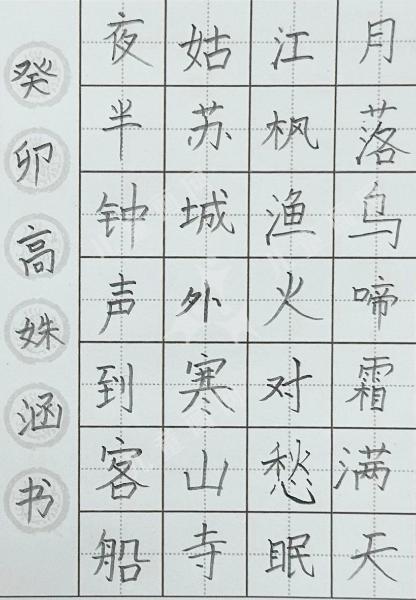 月落乌啼霜满天
江枫渔火对愁眠
姑苏城外寒山寺
夜半钟声到客船
癸卯高姝涵书